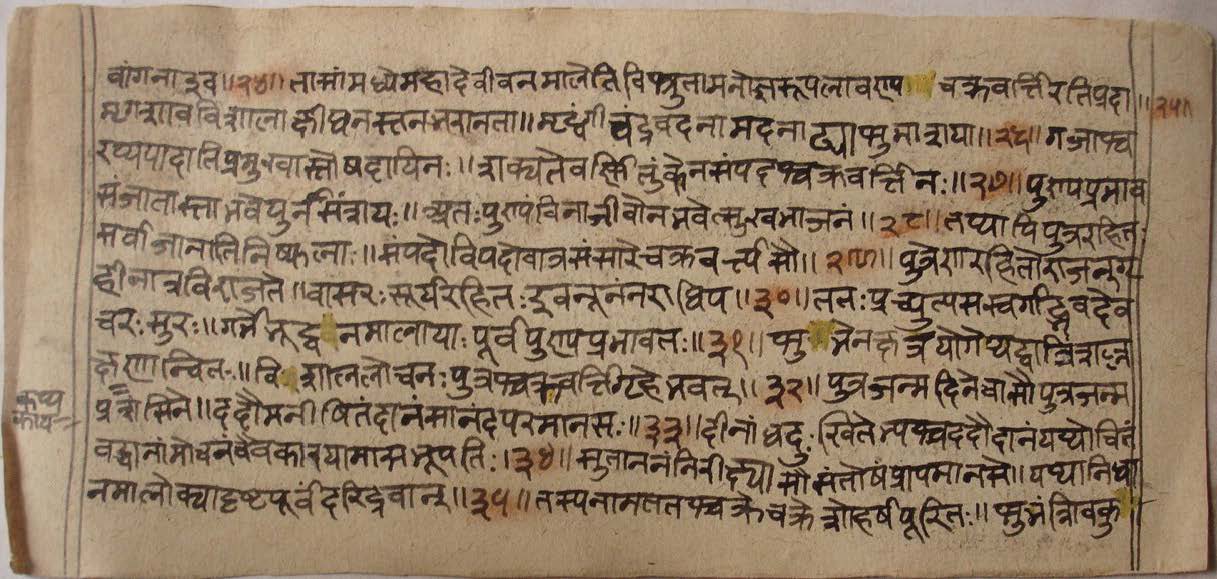 वांगना इव ॥२४॥ तासां मध्ये महादेवी वनमालेति विश्रुता मनोज्ञरूपलावण्य चक्रवर्त्तिरतिप्रदा ॥२५॥
मृगशावविशालाक्षी घनस्तनभरानता ॥ मृद्वंगी चंद्रवदना मदनाढ्या शुभाशया ॥२६॥ गजाश्व
रथ्यपादातिप्रमुखास्तोषदायिनः ॥ शक्यते वर्णितुं केन संपदश्चक्रवर्त्तिनः ॥२७॥ पुण्यप्रभाव
संजातास्ता भवेयुर्न संशयः ॥ अतः पुण्यं विना जीवो न भवेत्सुखभाजनं ॥२८॥ तथापि पुत्ररहित
सर्वा जानाति निष्फलाः ॥ संपदो विपदो वात्र संसारे चक्रवर्त्त्यसौ ॥२९॥ पुत्रेण रहितो राजन्
हीनात्र विराजते ॥ वासरः सूर्यरहितः इव नूनं नराधिप ॥३०॥ ततः प्रच्युत्य स स्वर्गाद् देव
चरः सुरः ॥ गर्भेभूद्व नमालायाः पूर्वपुण्यप्रभावतः ॥३१॥ शु भे नक्षत्रयोगे
क्षणान्वितः ॥ वि शाललोचनः पुत्रश्चक्रवर्त्तिगृहेभवत् ॥३२॥ पुत्रजन्मदिने चासौ पुत्रजन्म
प्रशंसिने ॥ ददौ मनीषितं दानं सानंदपरमानसः ॥३३॥ दीनांध दुःखितेभ्यश्च ददौ दानं यथोचितं
बद्धानां मोचनं चैव कारयामास भूपतिः ॥३४॥ सुताननं निरीक्ष्यासौ संतोषं प्राप मानसे ॥ यथा निधा
नमालोक्यादृष्टपूर्वं दरिद्रवान् ॥३५॥ तस्य नाम ततश्चक्रे चक्रेशो हर्षपूरितः ॥